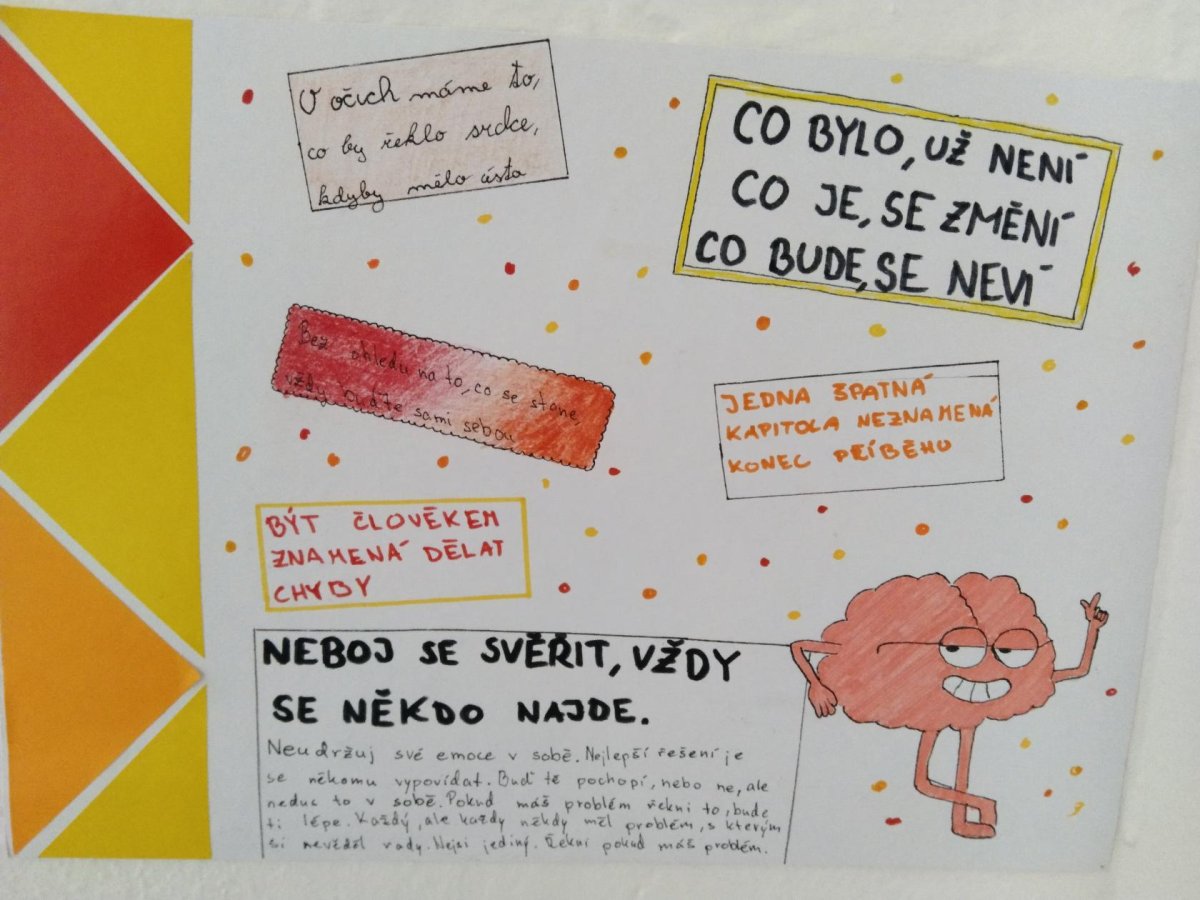 V očích máme to,
co by řeklo srdce,
kdyby mělo ústa
CO BYLO, UŽ NENÍ
CO JE, SE ZMĚNÍ
CO BUDE, SE NEVÍ
Bez ohledu na to, co se stane,
vždy buďte sami sebou
JEDNA ŠPATNÁ
KAPITOLA NEZNAMENÁ
KONEC PŘÍBĚHU
BÝT ČLOVĚKEM
ZNAMENÁ DĚLAT
CHYBY
NEBOJ SE SVĚŘIT, VŽDY
SE NĚKDO NAJDE.
Neudržuj své emoce v sobě. Nejlepší řešení je
se někomu vypovídat. Buď tě pochopí, nebo ne, ale
neduc to v sobě. Pokud máš problém řekni to, bude
ti lépe. Každý, ale každý někdy měl problém, s kterým
si nevěděl rady. Nejsi jediný. Řekni pokud máš problém.